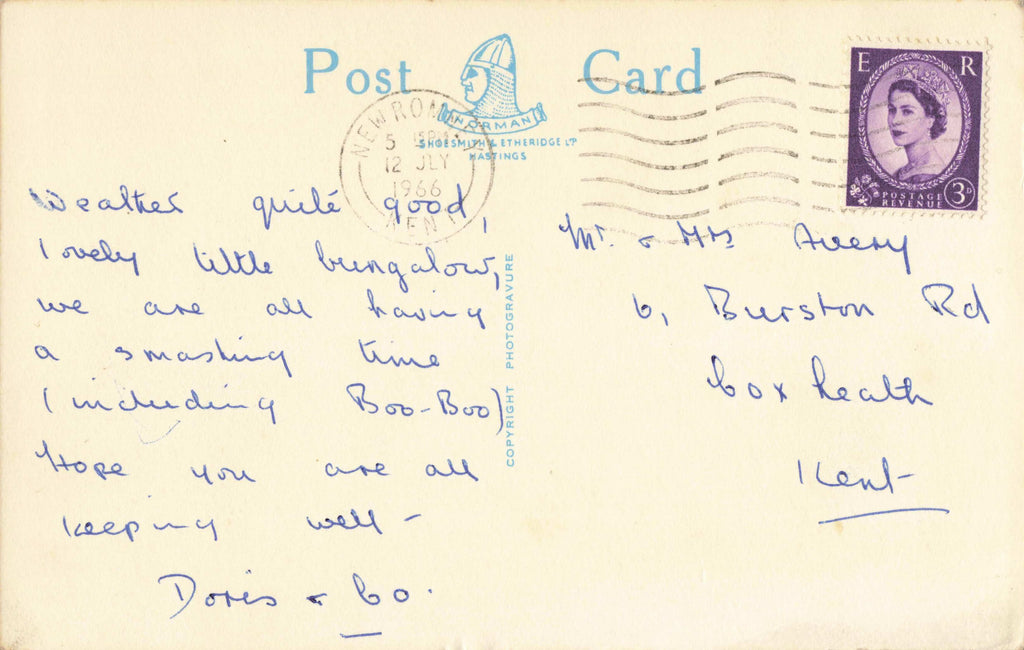 Post Card
NORMAN
SHOESMITH & ETHERIDGE LTD
HASTINGS
NEW ROMNEY
5
12 JLY
1966
KENT
E R
POSTAGE
REVENUE
3D
Weather quite good,
lovely little bungalow,
we are all having
a smashing time
(including Boo-Boo)
Hope you are all
keeping well -
Doris & Co.
COPYRIGHT PHOTOGRAVURE
Mr. & Mrs Avery
6, Burston Rd
Coxheath
Kent